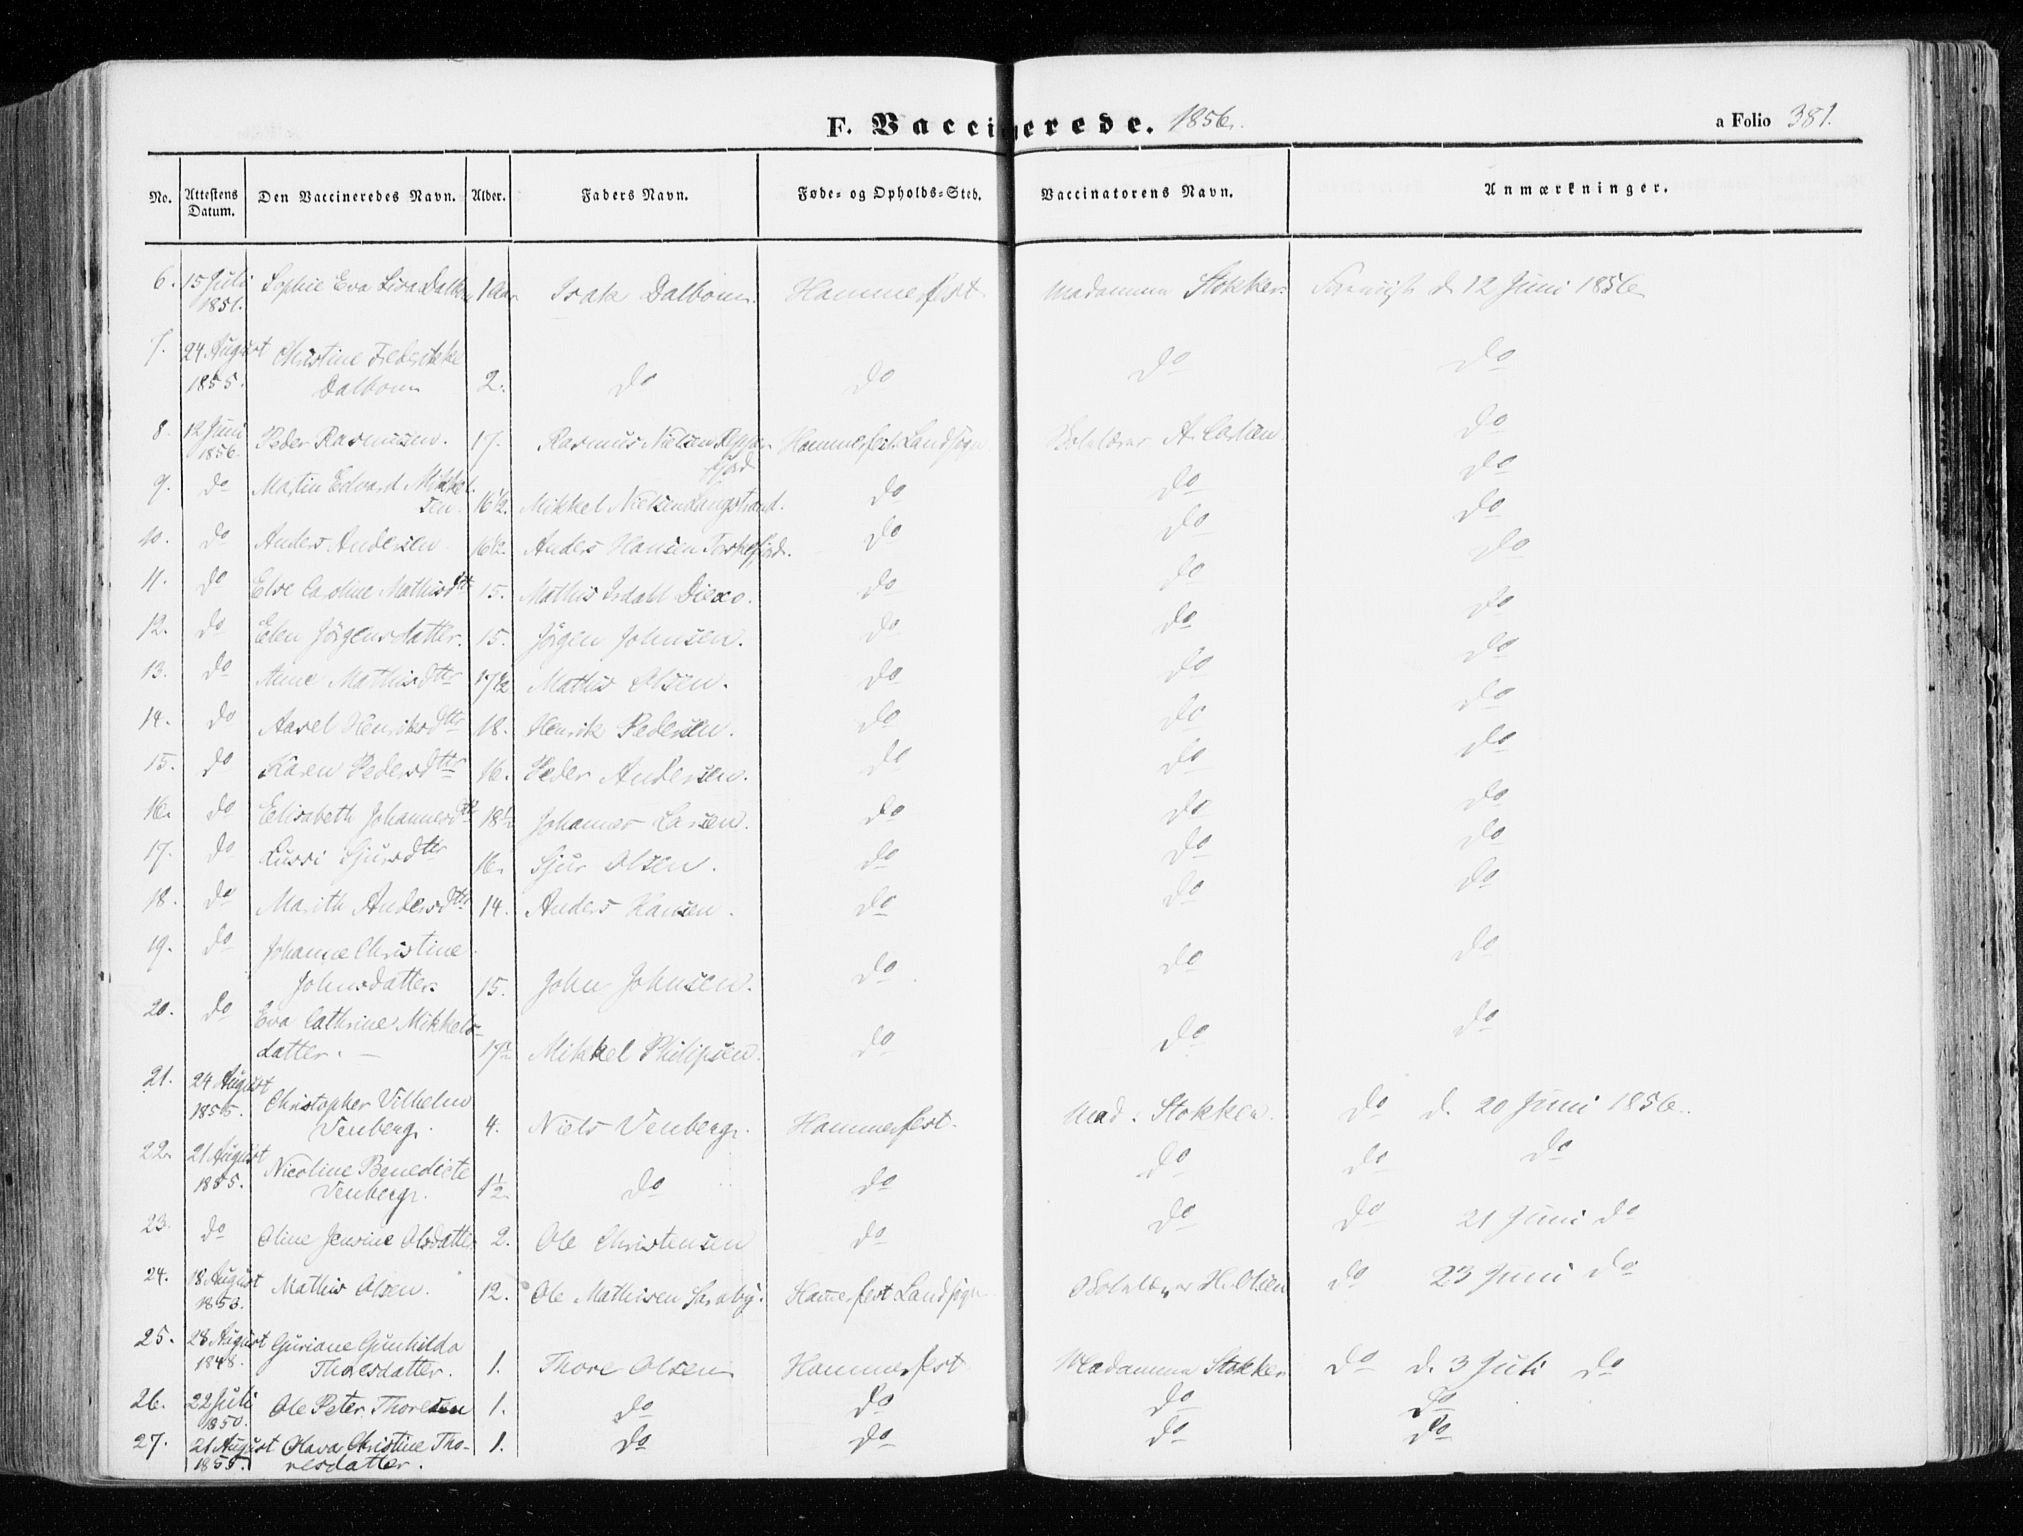 F. Vaccinerede. 1856. a Folio 381.
No. Attestens Datum. Den Vaccineredes Navn. Alder. Faders Navn. Føde- og Opholds-Sted. Vaccinatorens Navn. Anmærkninger.
6. 15 Juli 1851. Sophie Eva Dalbom 1 Aar Isak Dalbom. Hammerfest Madamme Stokken d. 12 Juni 1856
7. 24 August 1855. Christine Frederikke Dalbom 2. do do do do
8. 12 Juni 1856 Peder Rasmusen. 17. Rasmus Nielsen Hammerfest Landsogn do
9. do Martin Edvard Mikkelsen. 16 1/2. Mikkel Nielsen Langstrand. do do do
10. do Anders Andersen. 16 1/2. Anders Hansen do do do
11. do Else Caroline Mathisdttr 15. Mathis do do do
12. do Elen Jørgensdatter. 15. Jørgen Johnsen. do do do
13. do Anne Mathisdttr 17 1/2 Mathis Olsen. do do do
14. do Henriksdttr 18. Henrik Pedersen. do do do
15. do Karen Pedersdttr 16. Peder Andersen. do do do
16. do Elisabeth 18 1/2 Johannes Larsen. do do do
17. do Sjursdttr 16. Sjur Olsen. do do do
18. do Marith Andersdttr 14. Anders Hansen. do do do
19. do Johanne Christine Johnsdatter. 15. John Johnsen. do do do
20. do Eva Cathrine Mikkels-
datter. — Mikkel Philipsen. do do do
21. 24 August 1855. Christopher Vilhelm Venberg. 4. Niels Venberg. Hammerfest. Mad. Stokken. do d. 20 Juni 1856.
22. 21 August 1855. Nicoline Benedicte Venberg. 1 1/2. do do do do do
23. do Oline Jensine Olsdatter 2. Ole Christensen do do do 21 Juni do
24. 18 August 1853. Mathis Olsen. 12. Ole Mathisen Hamerfest Landsogn do 23 Juni do
25. 28 August 1848. Guriane Gunhilda Thoresdatter. 1. Thore Olsen Hammerfest Madamme Stokken do d. 3 Juli do
26. 22 Juli 1850. Ole Peter Thoresen 1. do do do do
27. 21 August 1855. Olava Christine Tho-
resdatter. 1. do do do do